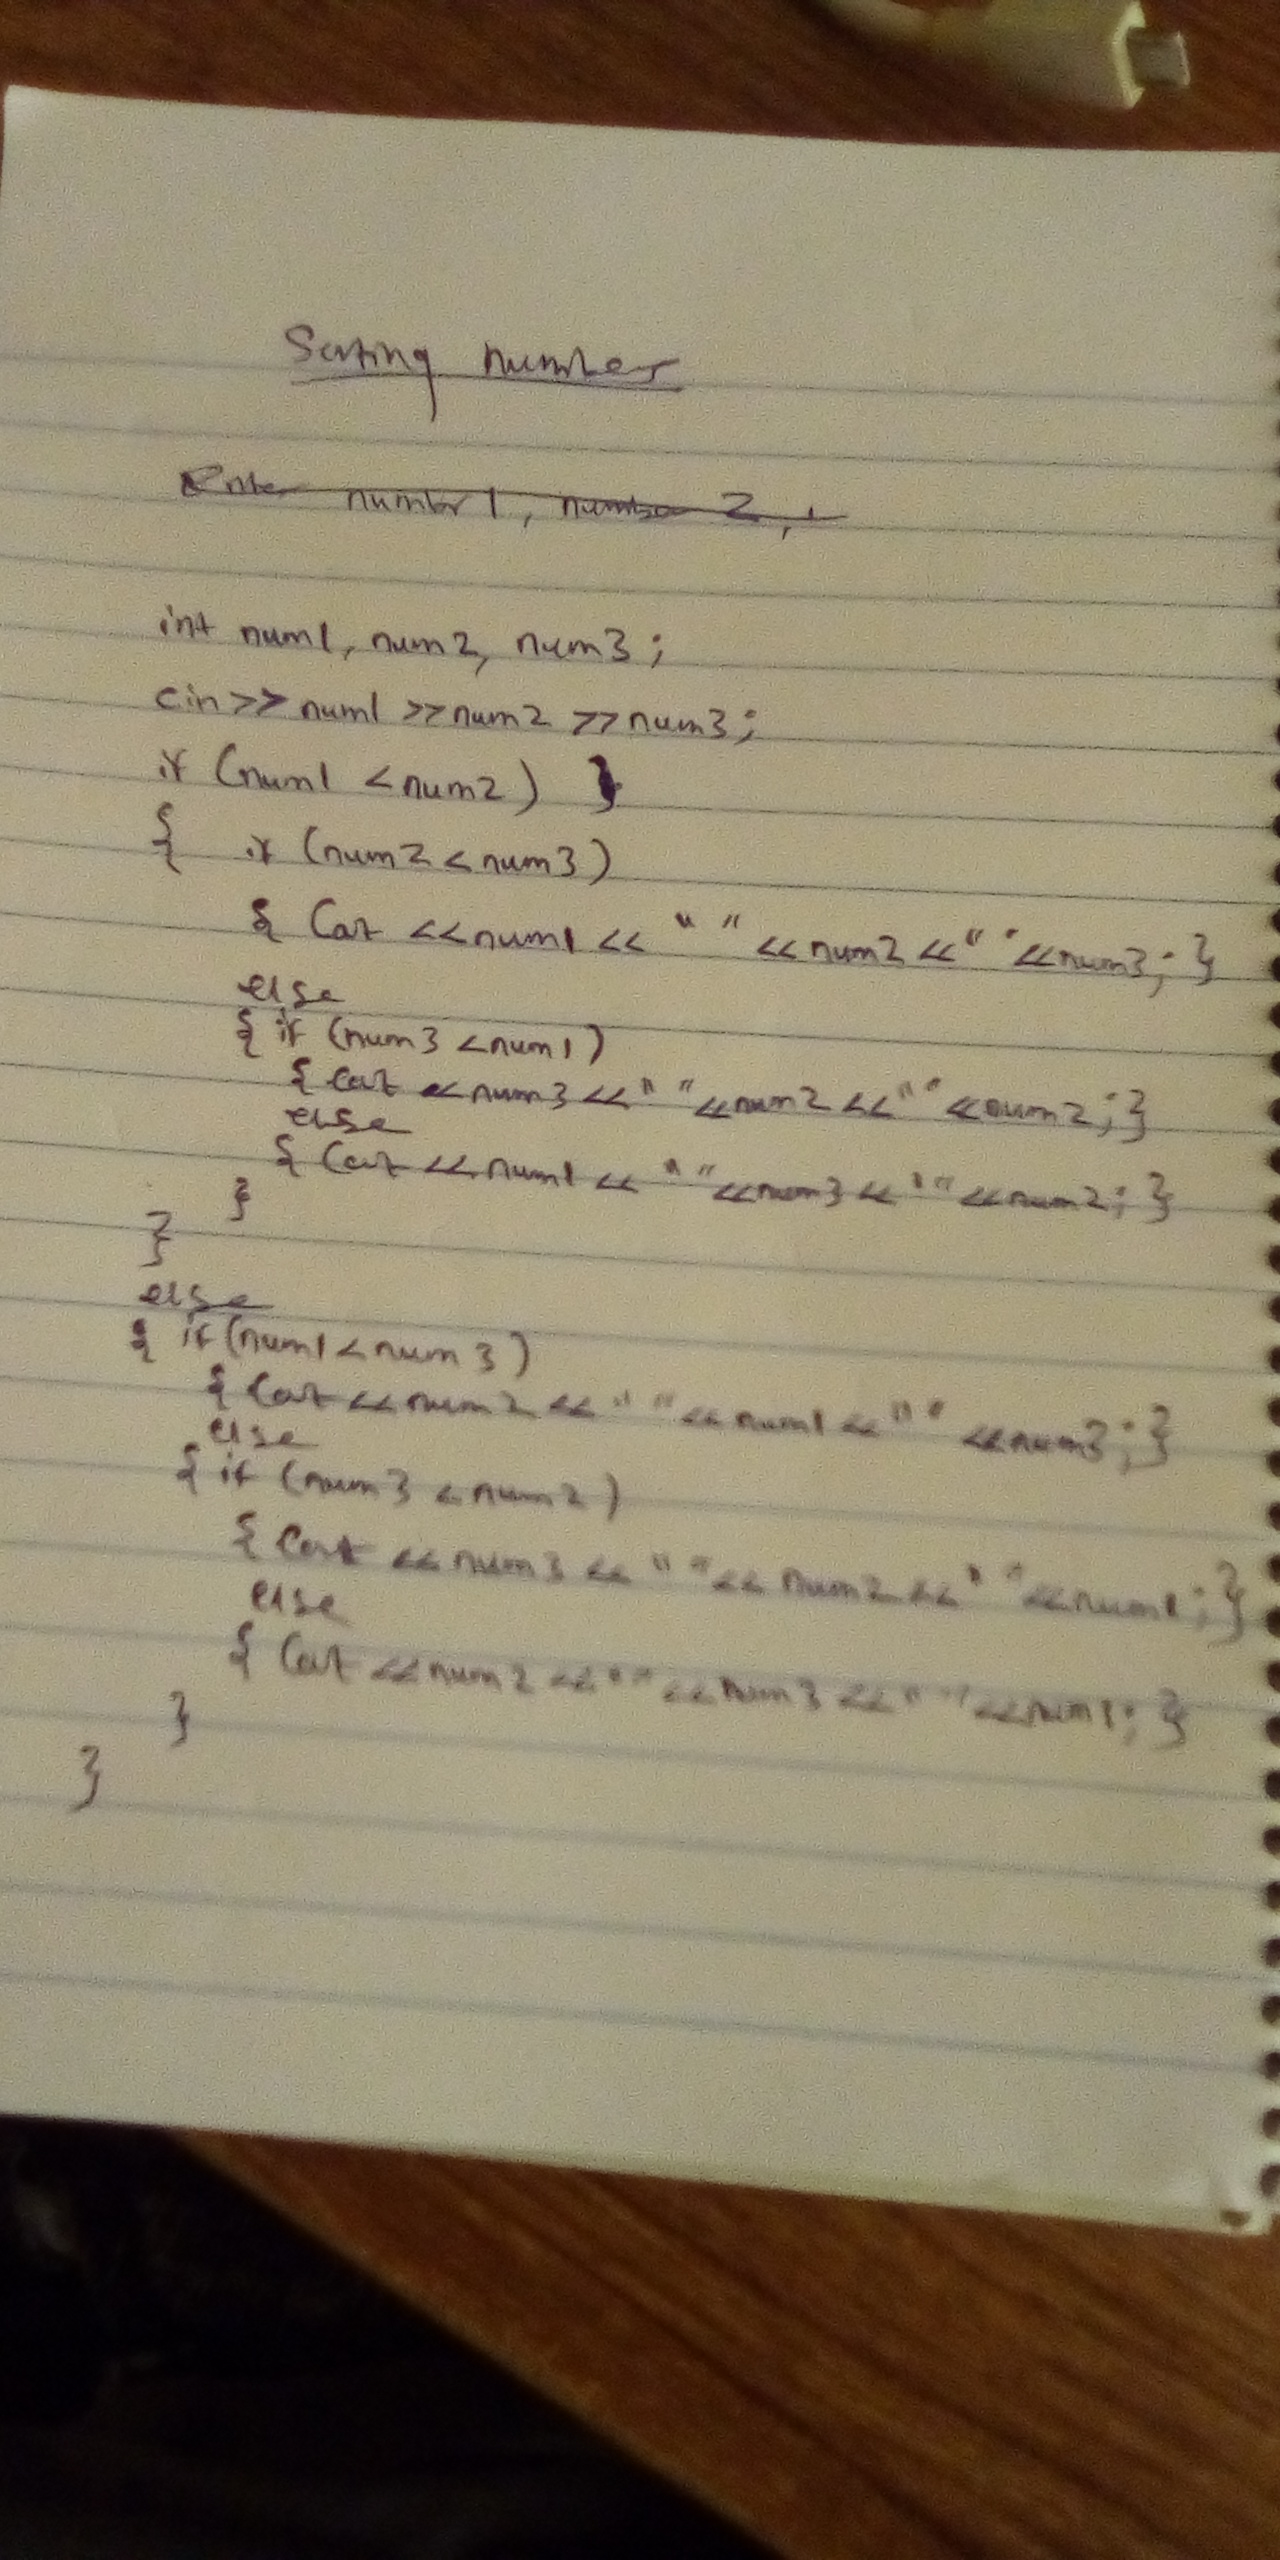 Sorting number
Enter number 1, number 2, 
int num1, num2, num3;
cin>> num1 >>num2 >>num3;
if (num1 <num2) }
{ if (num2 < num3)
{ Cout <<num1 << " " <<num2 <<" "<<num3; }
else
{ if (num3 <num1)
{ Cout <<num3 <<" "<<num2 <<" "<<num2; }
else
{ Cout <<num1 << " "<<num3 << " "<<num2; }
}
}
else
{ if (num1 < num3)
{ Cout <<num2 << " "<<num1 <<" " <<num3; }
else
{ if (num3 < num2)
{ Cout <<num3 << " "<< num2 <<" "<<num1; }
else
{ Cout <<num2 <<" "<<num3 <<" "<<num1; }
}
}